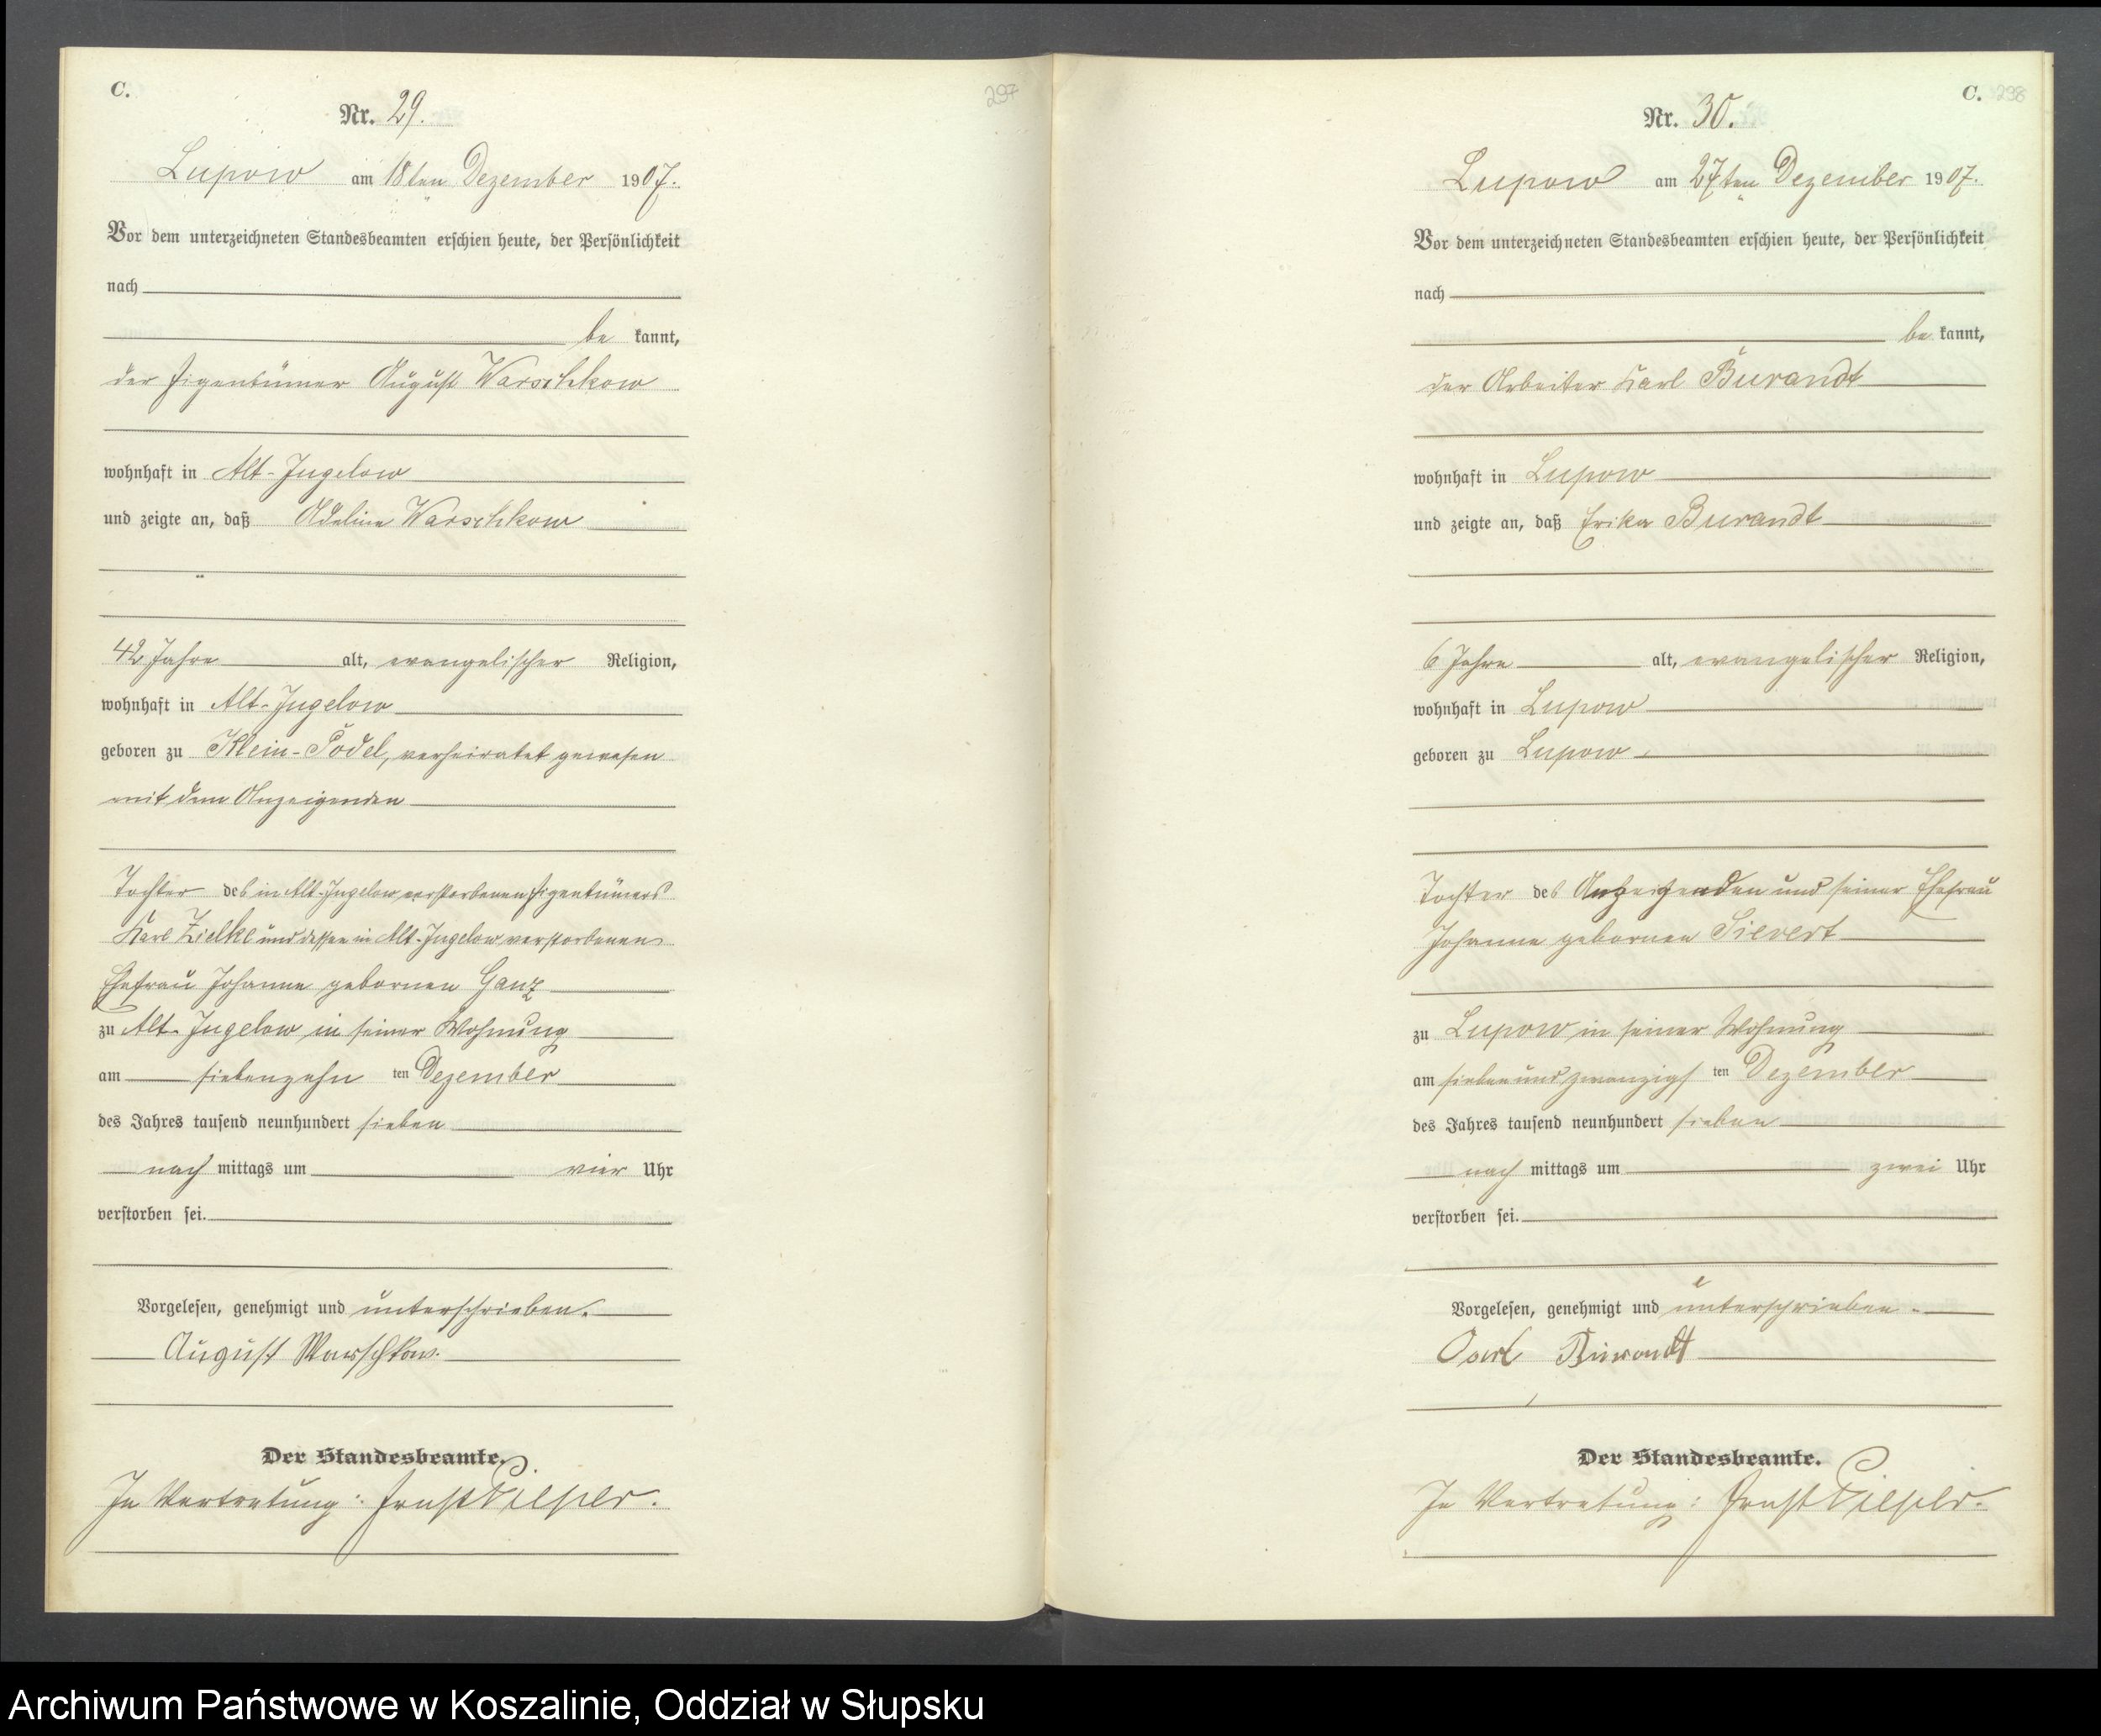 C.
297
Nr. 29.
Lupow am 18ten Dezember 1907.
Vor dem unterzeichneten Standesbeamten erschien heute, der Persönlichkeit
nach
be kannt,
der Eigentümer August Warschkow
wohnhaft in Alt-Jugelow
und zeigte an, daß Adeline Warschkow
42 Jahre alt, evangelischer Religion,
wohnhaft in Alt-Jugelow
geboren zu Klein-Podel, verheiratet gewesen
mit dem Anzeigenden
Tochter des in Alt-Jugelow verstorbenen Eigentümers
Karl Zielke und dessen in Alt-Jugelow verstorbenen
Ehefrau Johanne gebornen Ganz
zu Alt-Jugelow in seiner Wohnung
am siebenzehn ten Dezember
des Jahres tausend neunhundert sieben
nach mittags um vier Uhr
verstorben sei.
Vorgelesen, genehmigt und unterschrieben.
August Warschkow.
Der Standesbeamte.
In Vertretung: Ernst Pieper.
C. 298
Nr. 30.
Lupow am 27ten Dezember 1907.
Vor dem unterzeichneten Standesbeamten erschien heute, der Persönlichkeit
nach
be kannt,
der Arbeiter Karl Burandt
wohnhaft in Lupow
und zeigte an, daß Erika Burandt
6 Jahre alt, evangelischer Religion,
wohnhaft in Lupow
geboren zu Lupow
Tochter des Anzeigenden und seiner Ehefrau
Johanne gebornen Sievert
zu Lupow in seiner Wohnung
am sieben und zwanzigs ten Dezember
des Jahres tausend neunhundert sieben
nach mittags um zwei Uhr
verstorben sei.
Vorgelesen, genehmigt und unterschrieben.
Carl Burandt
Der Standesbeamte.
In Vertretung: Ernst Pieper.
Archiwum Państwowe w Koszalinie, Oddział w Słupsku